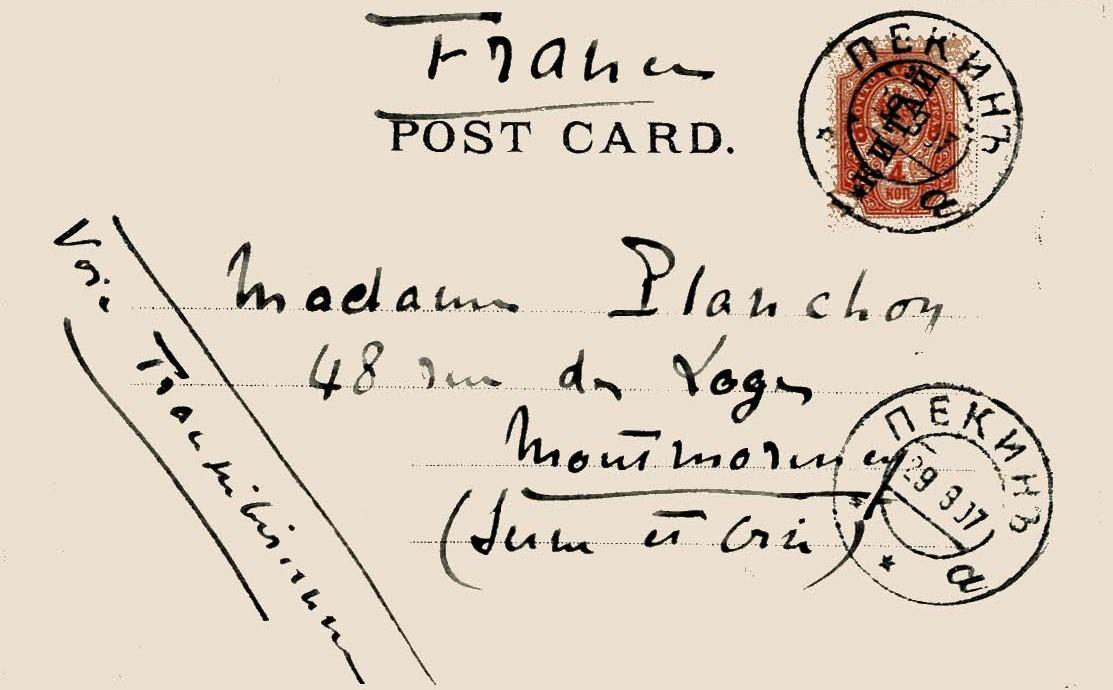 France
POST CARD.
ПЕКИНЪ
КИТАЙ
4
КОП
а
Madame Planchon
48 rue des Loges
Montmorency
(Seine et Oise)
Voie Transsibérienne
ПЕКИНЪ
а